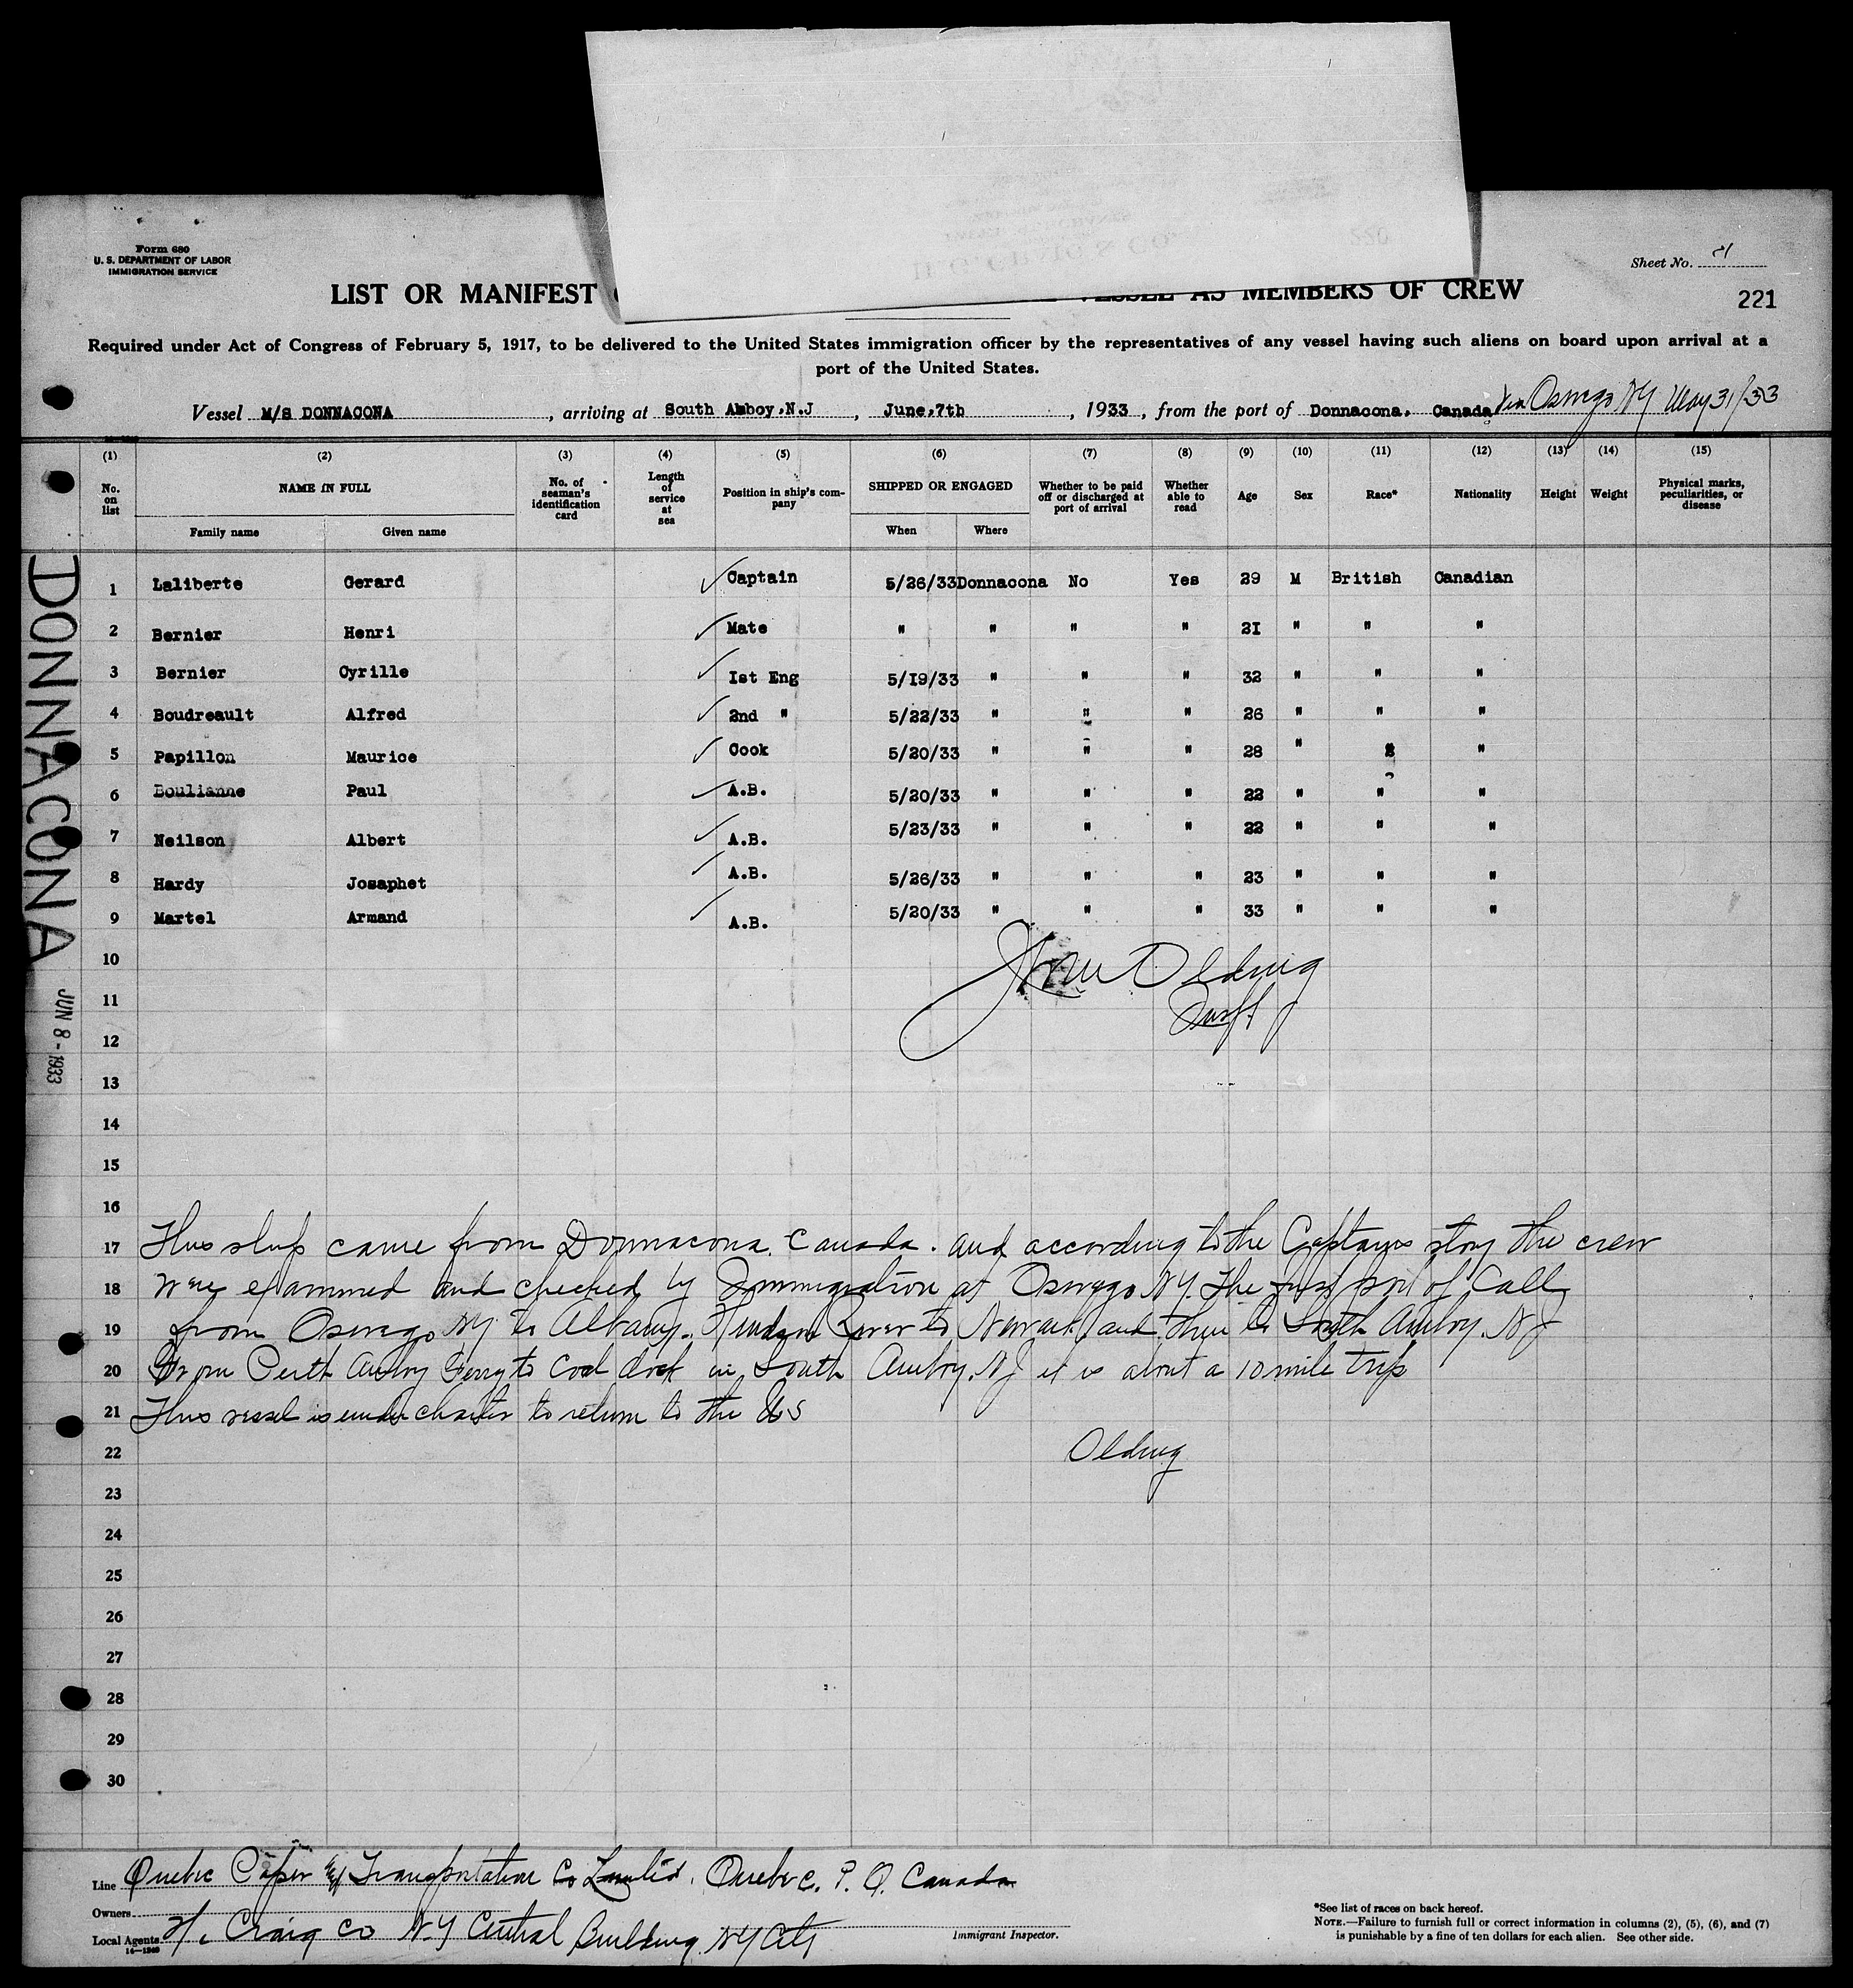 Form 680
U. S. DEPARTMENT OF LABOR
IMMIGRATION SERVICE
Sheet No.
LIST OR MANIFEST VESSEL AS MEMBERS OF CREW
221
Required under Act of Congress of February 5, 1917, to be delivered to the United States immigration officer by the representatives of any vessel having such aliens on board upon arrival at a
port of the United States.
Vessel M/S DONNACONA, arriving at South Amboy,N.J, June,7th, 1933, from the port of Donnacona, Canada Via Oswego NY May 31/33
(1) (2) (3) (4) (5) (6) (7) (8) (9) (10) (11) (12) (13) (14) (15)
No. on list NAME IN FULL No. of seaman's identification card Length of service at sea Position in ship's company SHIPPED OR ENGAGED Whether to be paid off or discharged at port of arrival Whether able to read Age Sex Race* Nationality Height Weight Physical marks, peculiarities, or disease
Family name Given name When Where
1 Laliberte Gerard Captain 5/26/33 Donnacona No Yes 29 M British Canadian
2 Bernier Henri Mate " " " " 2I " " "
3 Bernier Cyrille Ist Eng 5/I9/33 " " " 32 " " "
4 Boudreault Alfred 2nd " 5/22/33 " " " 26 " " "
5 Papillon Maurice Cook 5/20/33 " " " 28 " " "
6 Boulianne Paul A.B. 5/20/33 " " " 22 " " "
7 Neilson Albert A.B. 5/23/33 " " " 22 " " "
8 Hardy Josaphet A.B. 5/26/33 " " " 23 " " "
9 Martel Armand A.B. 5/20/33 " " " 33 " " "
10
Olding
11
Insp.
12
13
14
15
16
17 This ship came from Donnacona Canada. and according to the Captains story the crew
18 were examined and checked by Immigration at Oswego NY. The first port of Call
19 from Oswego NY to Albany. Hudson River to Newark and then to South Amboy. NJ
20 From Perth Amboy Ferry to Coal dock in South Amboy. NJ it is about a 10 mile trip
21 This vessel is under charter to return to the US
22 Olding
23
24
25
26
27
28
29
30
DONNACONA
JUN 8 - 1933
Line Quebec Paper Transportation Co Limited. Quebec. P. Q. Canada
Owners
Local Agents H. Craig Co N.Y Central Building NY City
14—1240
Immigrant Inspector.
*See list of races on back hereof.
NOTE.—Failure to furnish full or correct information in columns (2), (5), (6), and (7)
is punishable by a fine of ten dollars for each alien. See other side.